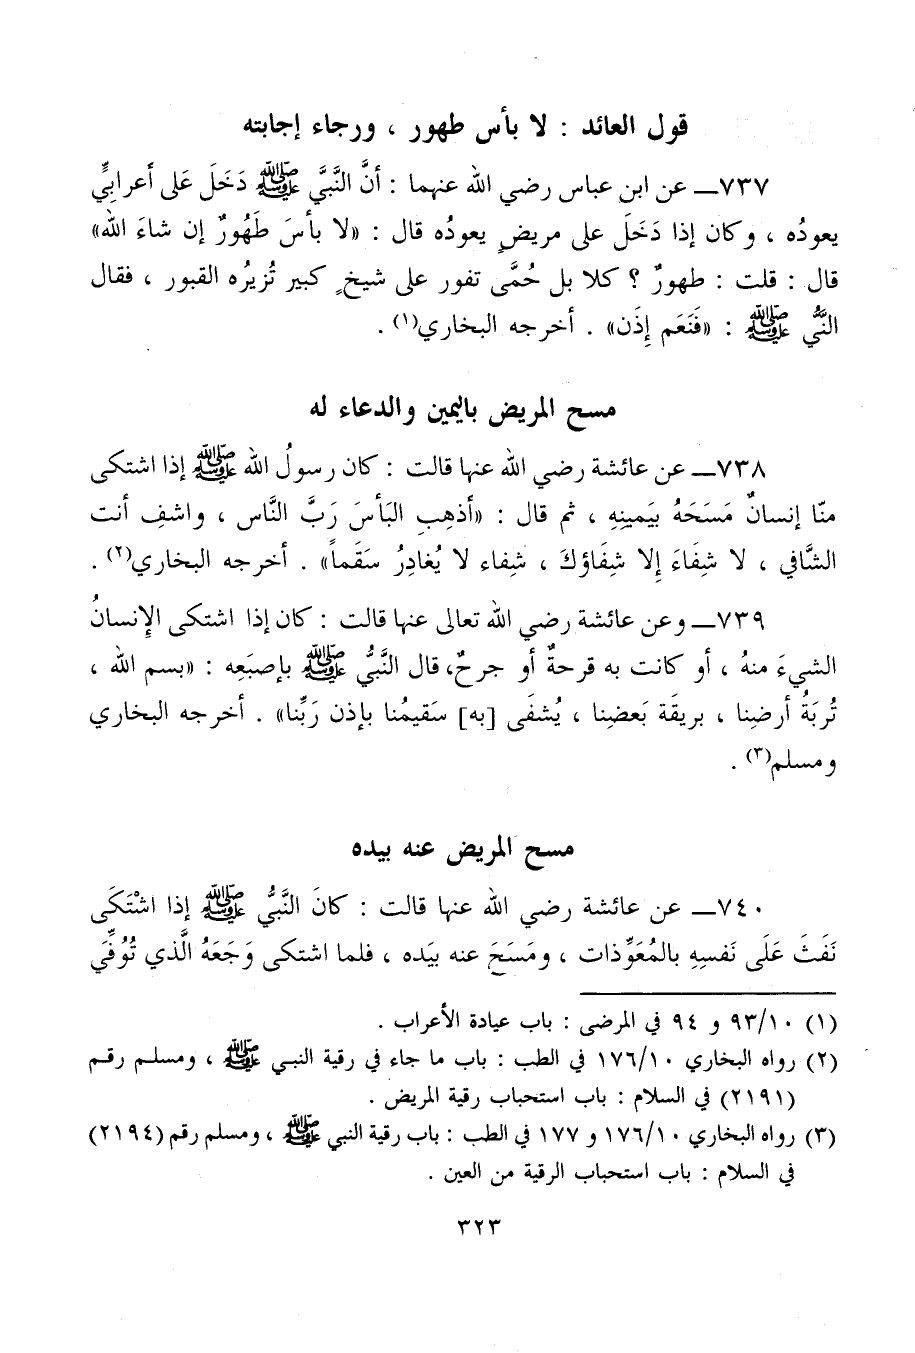 قول العائد : لا بأس طهور ، ورجاء إجابته
٧٣٧ــ عن ابن عباس رضي الله عنهما : أنَّ النَّبيَّ ﷺ دَخَلَ عَلى أعرابيٍّ
يعودُه ، وكان إذا دَخَلَ على مريضٍ يعودُه قال : «لا بأسَ طَهُورٌ إن شاءَ الله»
قال : قلت : طهورٌ ؟ كلا بل حُمَّى تفور على شيخٍ كبير تُزيرُه القبور ، فقال
النَّبيُّ ﷺ : «فَنَعَم إِذَن» . أخرجه البخاري(١) .
مسح المريض باليمين والدعاء له
٧٣٨ــ عن عائشة رضي الله عنها قالت : كان رسولُ الله ﷺ إذا اشتكى
منّا إنسانٌ مَسَحَهُ بيَمينِهِ ، ثم قال : «أذهِبِ البَأسَ رَبَّ النَّاس ، واشفِ أنت
الشَّافي ، لا شفَاءَ إلا شفَاؤكَ ، شفاء لا يُغادِرُ سَقَماً» . أخرجه البخاري(٢) .
٧٣٩ــ وعن عائشة رضي الله تعالى عنها قالت : كان إذا اشتكى الإنسانُ
الشيءَ منهُ ، أو كانت به قرحةٌ أو جرحٌ، قال النَّبيُّ ﷺ بإصبَعِه : «بسم الله ،
تُربَةُ أرضِنا ، بريقَة بَعضِنا ، يُشفَى [به] سَقيمُنا بإذن رَبِّنا» . أخرجه البخاري
ومسلم(٣) .
مسح المريض عنه بيده
٧٤٠ــ عن عائشة رضي الله عنها قالت : كانَ النَّبيُّ ﷺ إذا اشْتَكَى
نَفَثَ عَلَى نَفسِهِ بالمُعَوِّذات ، ومَسَحَ عنه بيَده ، فلما اشتكى وَجَعَهُ الَّذي تُوُفِّيَ
(١) ٩٣/١٠ و ٩٤ في المرضى : باب عيادة الأعراب .
(٢) رواه البخاري ١٧٦/١٠ في الطب : باب ما جاء في رقية النبي ﷺ ، ومسلم رقم
(٢١٩١) في السلام : باب استحباب رقية المريض .
(٣) رواه البخاري ١٧٦/١٠ و ١٧٧ في الطب : باب رقية النبي ﷺ ، ومسلم رقم (٢١٩٤)
في السلام : باب استحباب الرقية من العين .
٣٢٣